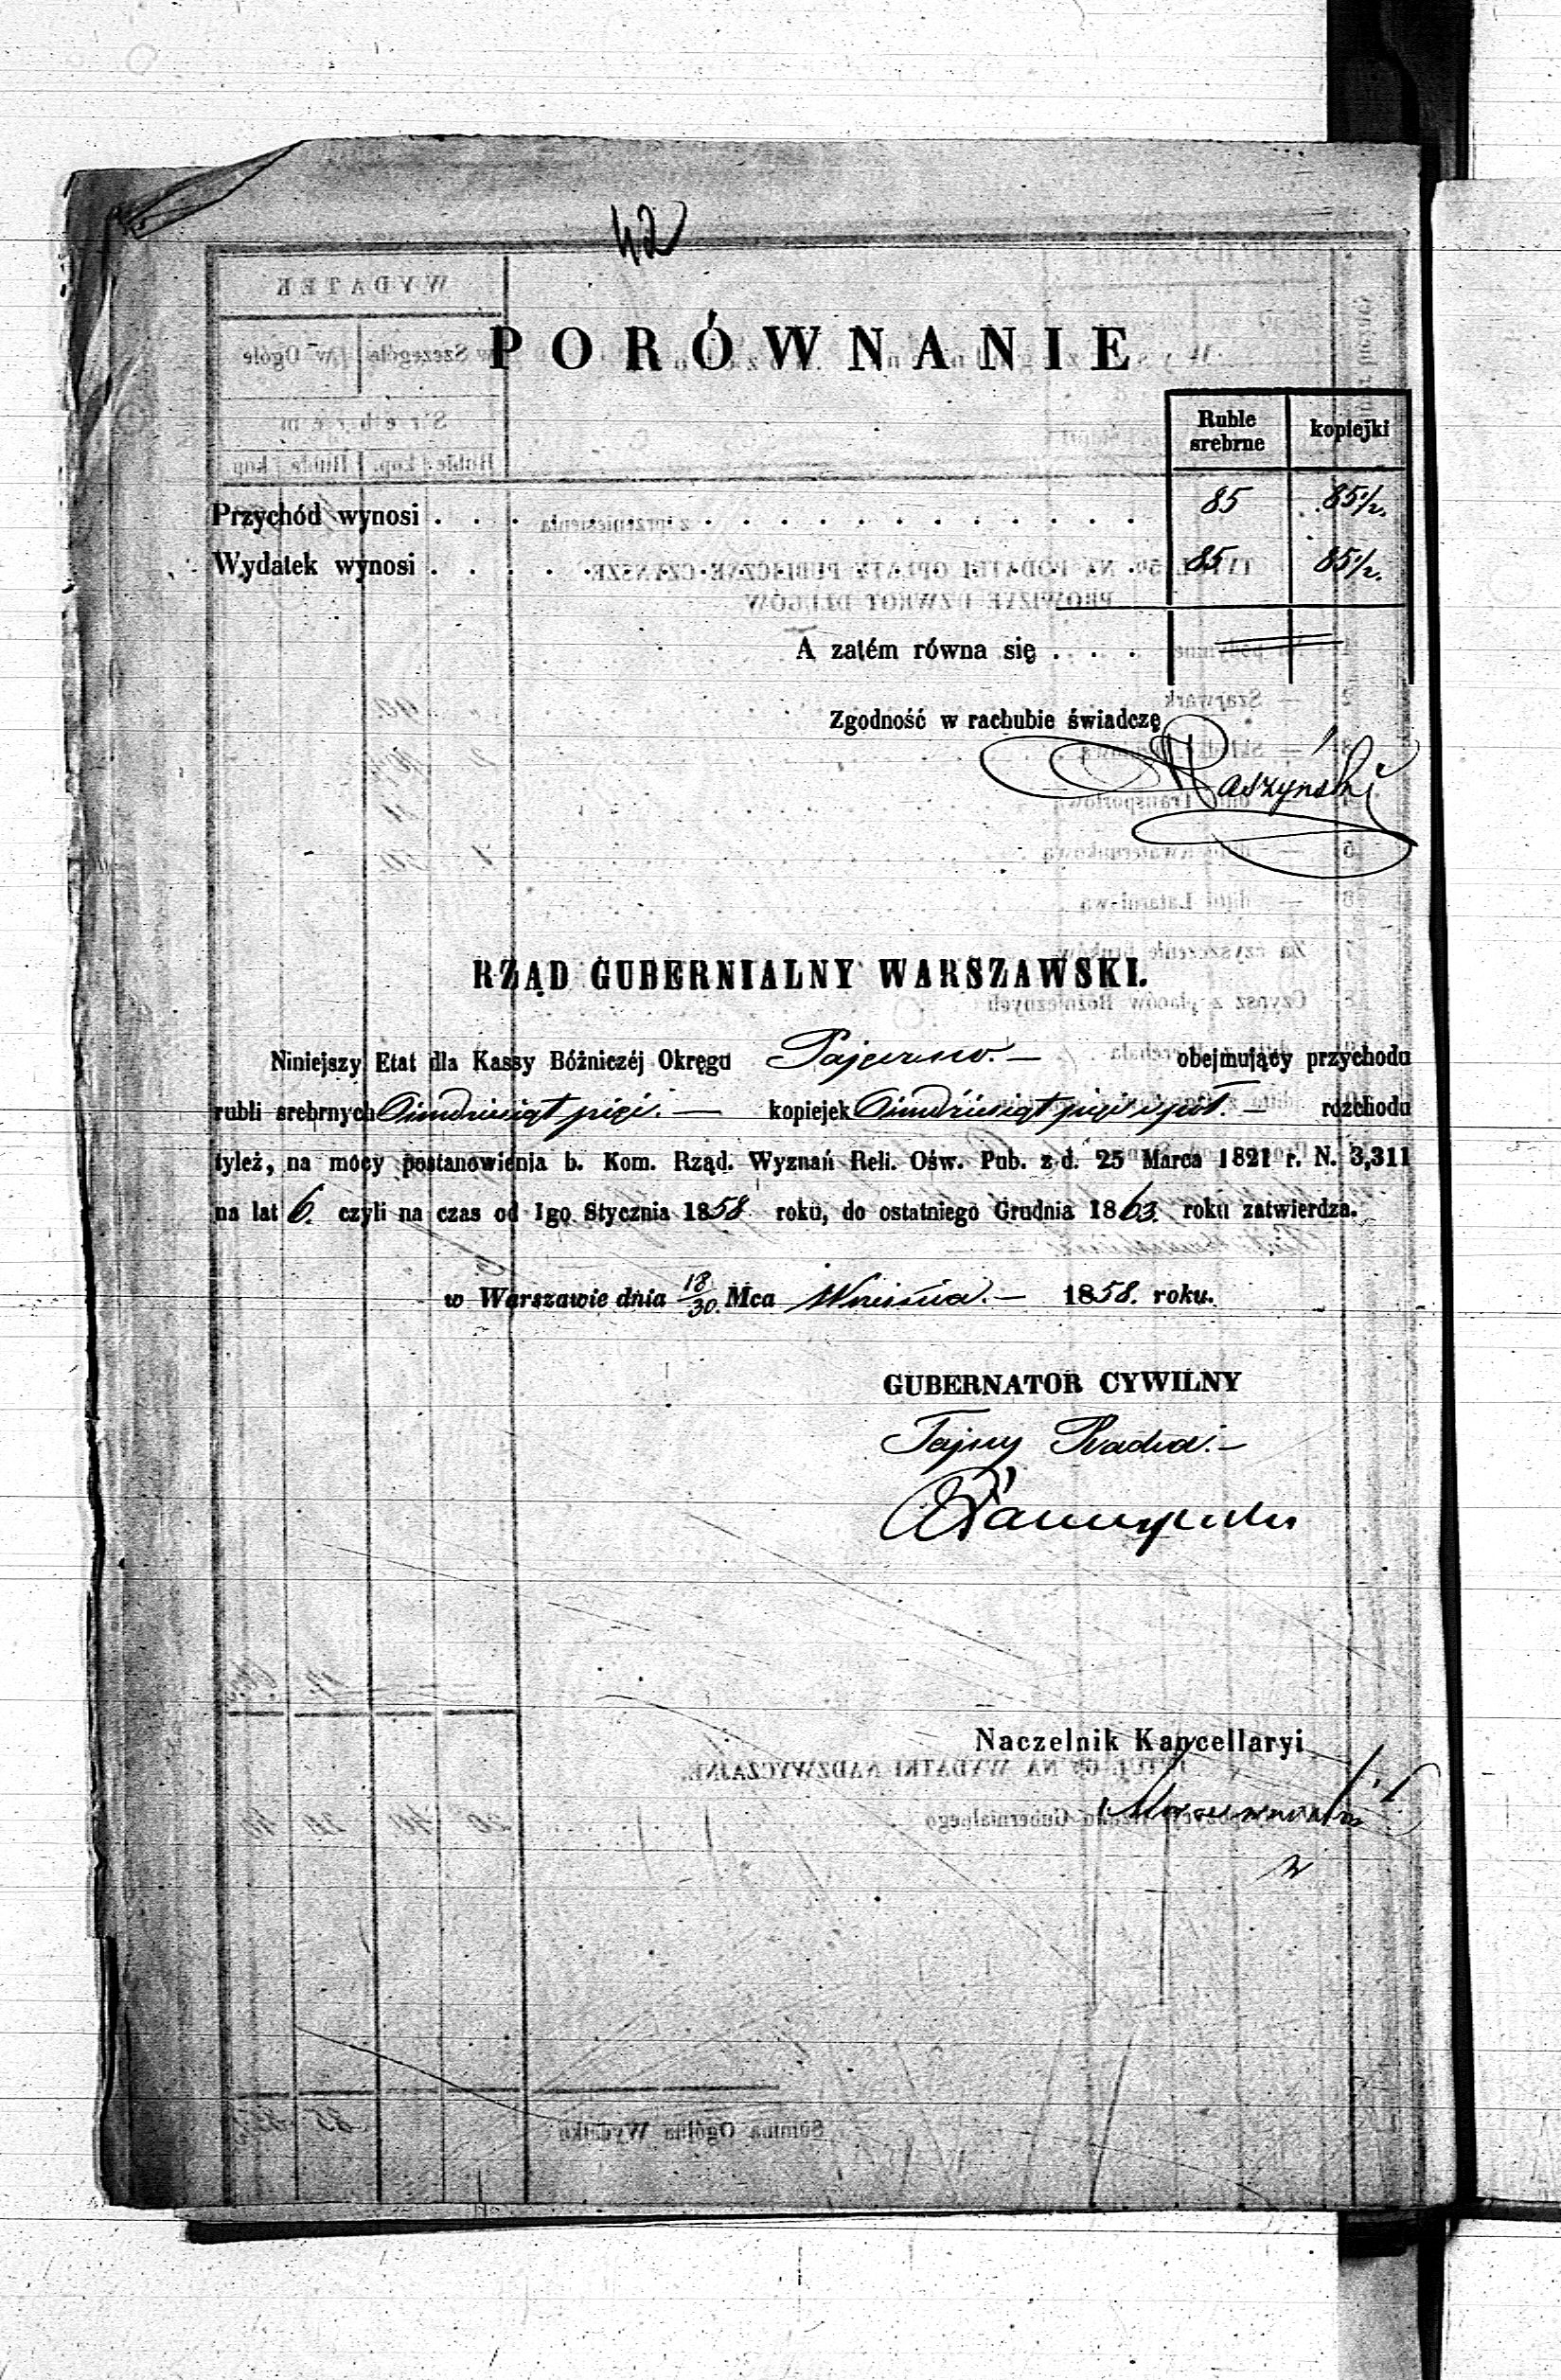 42
PORÓWNANIE
Ruble srebrne kopiejki
Przychód wynosi . . . . . . . . . . . . . . . . 85 85 1/2.
Wydatek wynosi . . . . . . . . . . . . . . . . 85 85 1/2.
A zatém równa się . . .
Zgodność w rachubie świadczę
Raszyński
RZĄD GUBERNIALNY WARSZAWSKI.
Niniejszy Etat dla Kassy Bóżniczéj Okręgu Pajęczno. — obejmujący przychodu
rubli srebrnych Ośmdziesiąt pięć. — kopiejek Ośmdziesiąt pięć i pół. — rozchodu
tyleż, na mocy postanowienia b. Kom. Rząd. Wyznań Reli. Ośw. Pub. z d. 25 Marca 1821 r. N. 3,311
na lat 6. czyli na czas od 1go Stycznia 1858 roku, do ostatniego Grudnia 1863. roku zatwierdza.
w Warszawie dnia 18/30. Mca Września. — 1858. roku.
GUBERNATOR CYWILNY
Tajny Radca. —
Naczelnik Kancellaryi